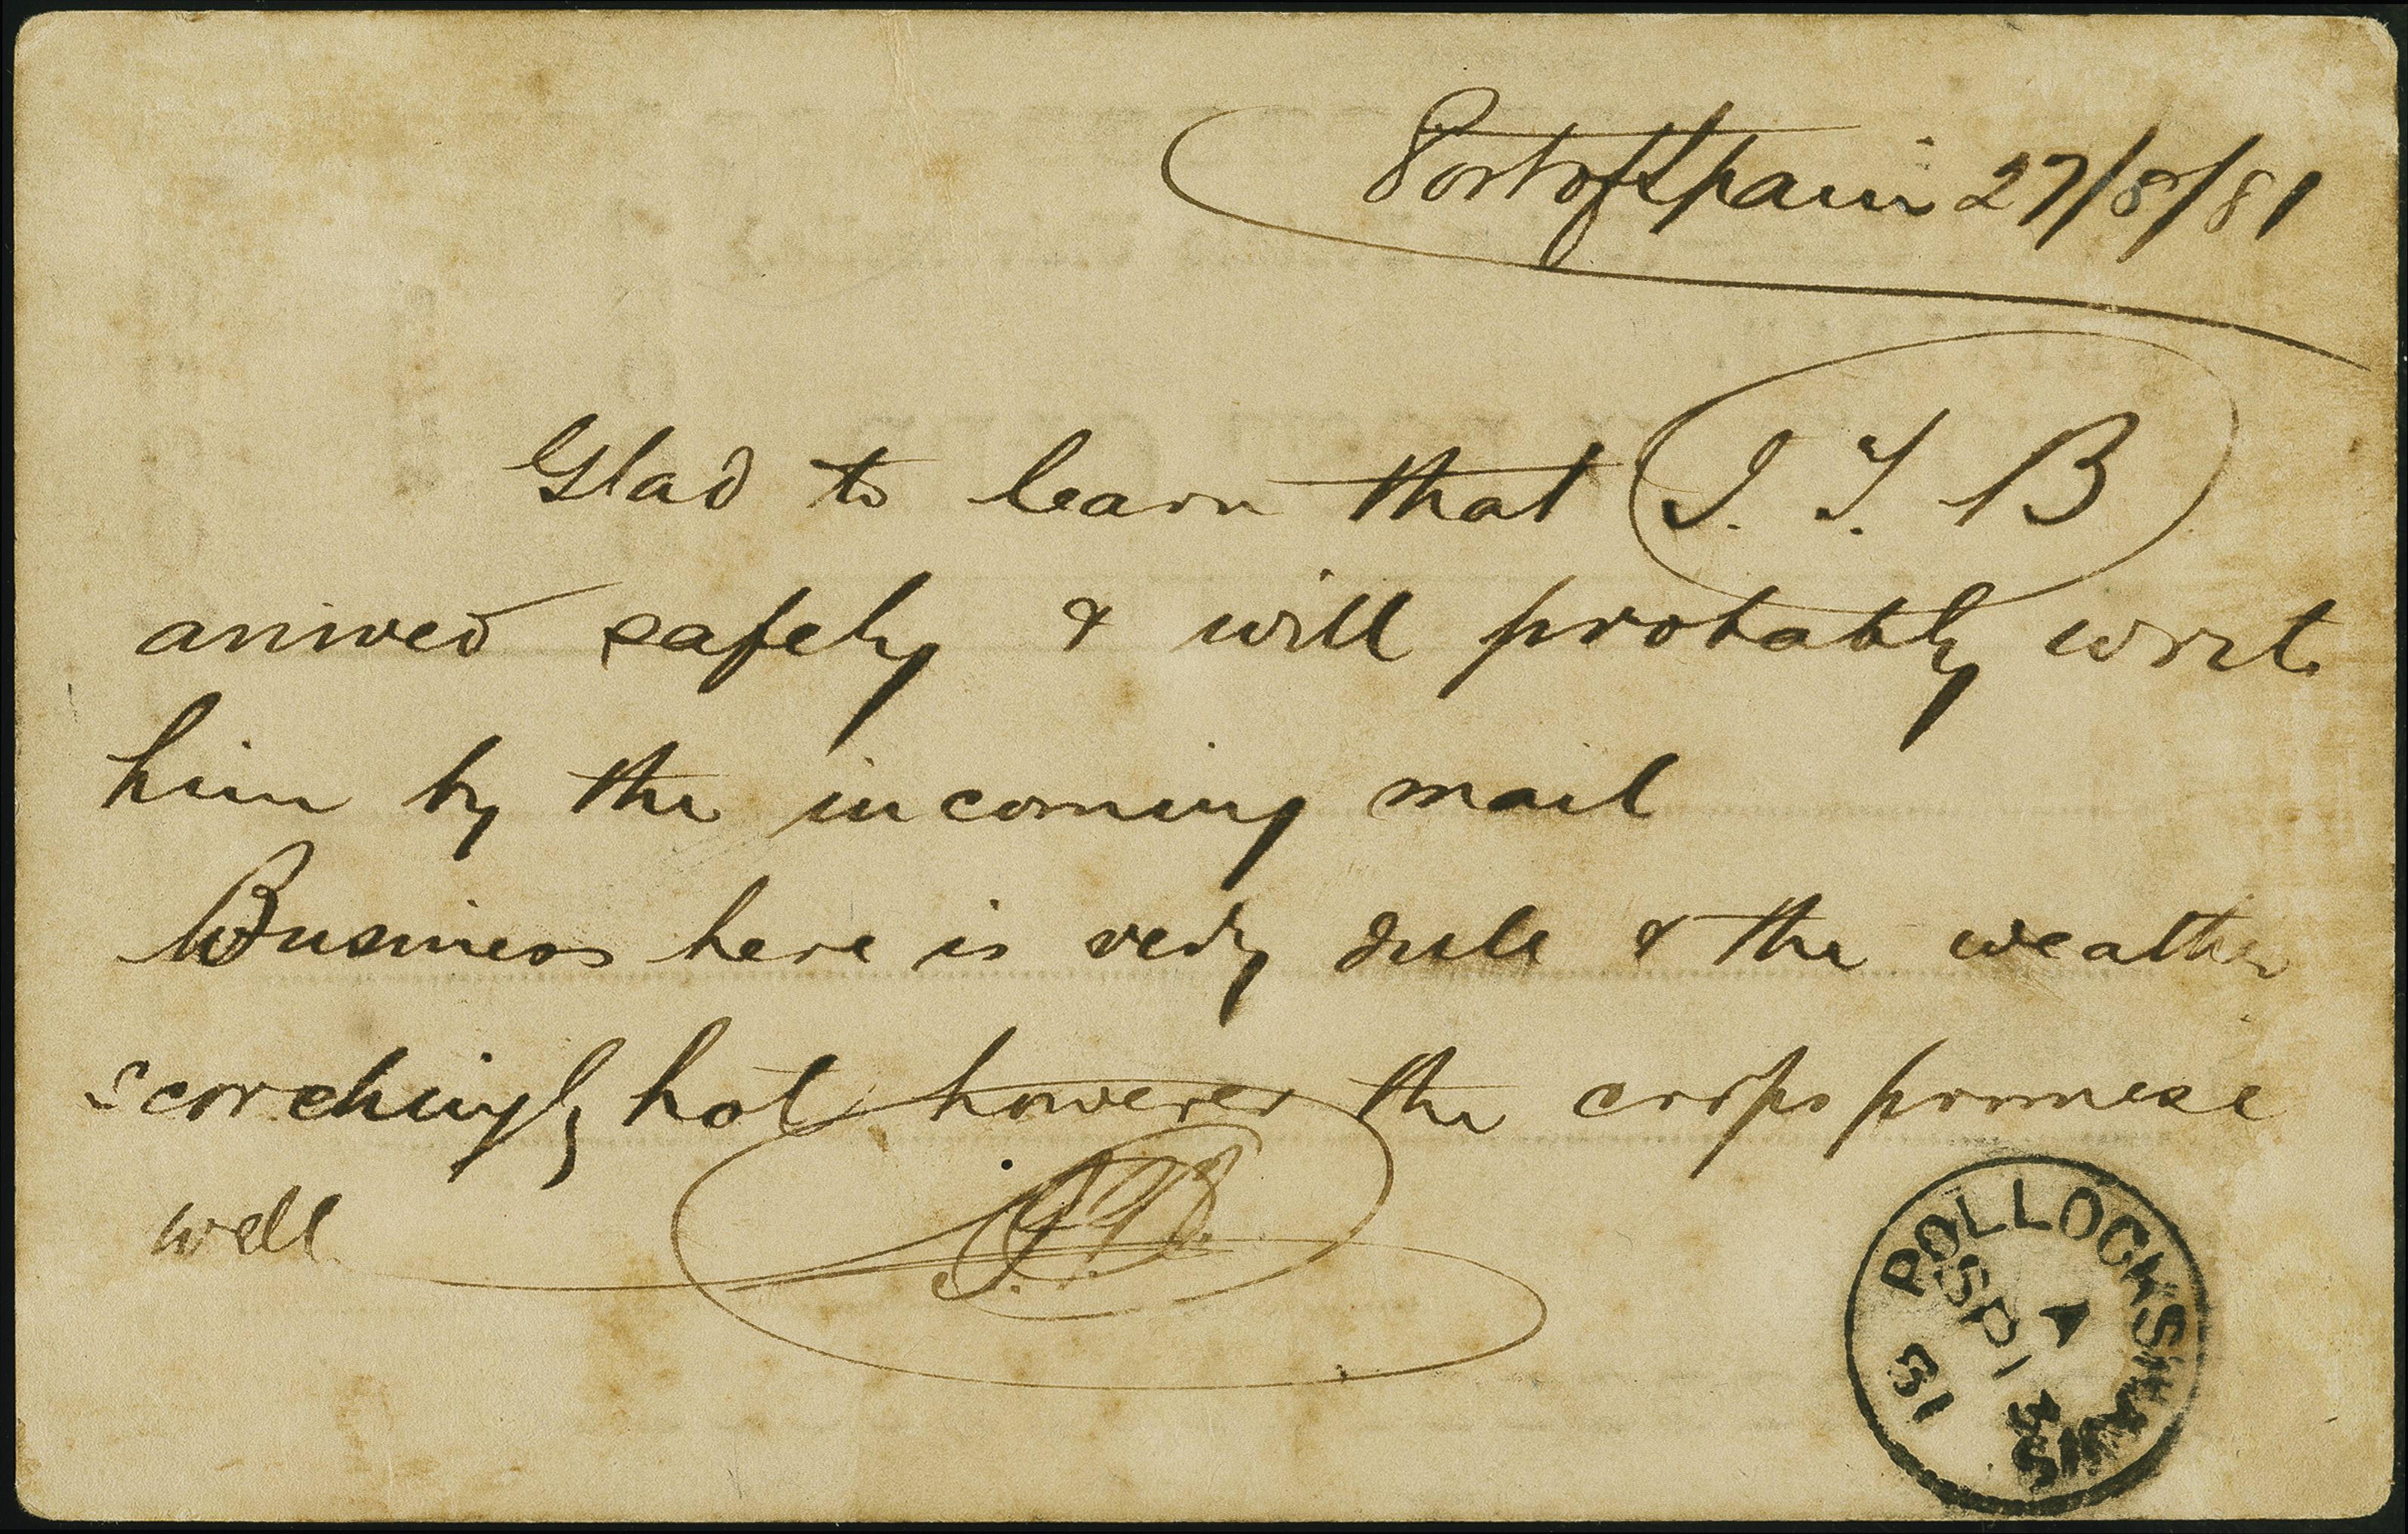 Port of Spain 27/8/81
Glad to learn that J. J. B
arrived safely & will probably write
him by the incoming mail
Business here is very dull & the weather
scorchingly hot however the crops promese
well
POLLOCKSHAWS
A
SP 13
81